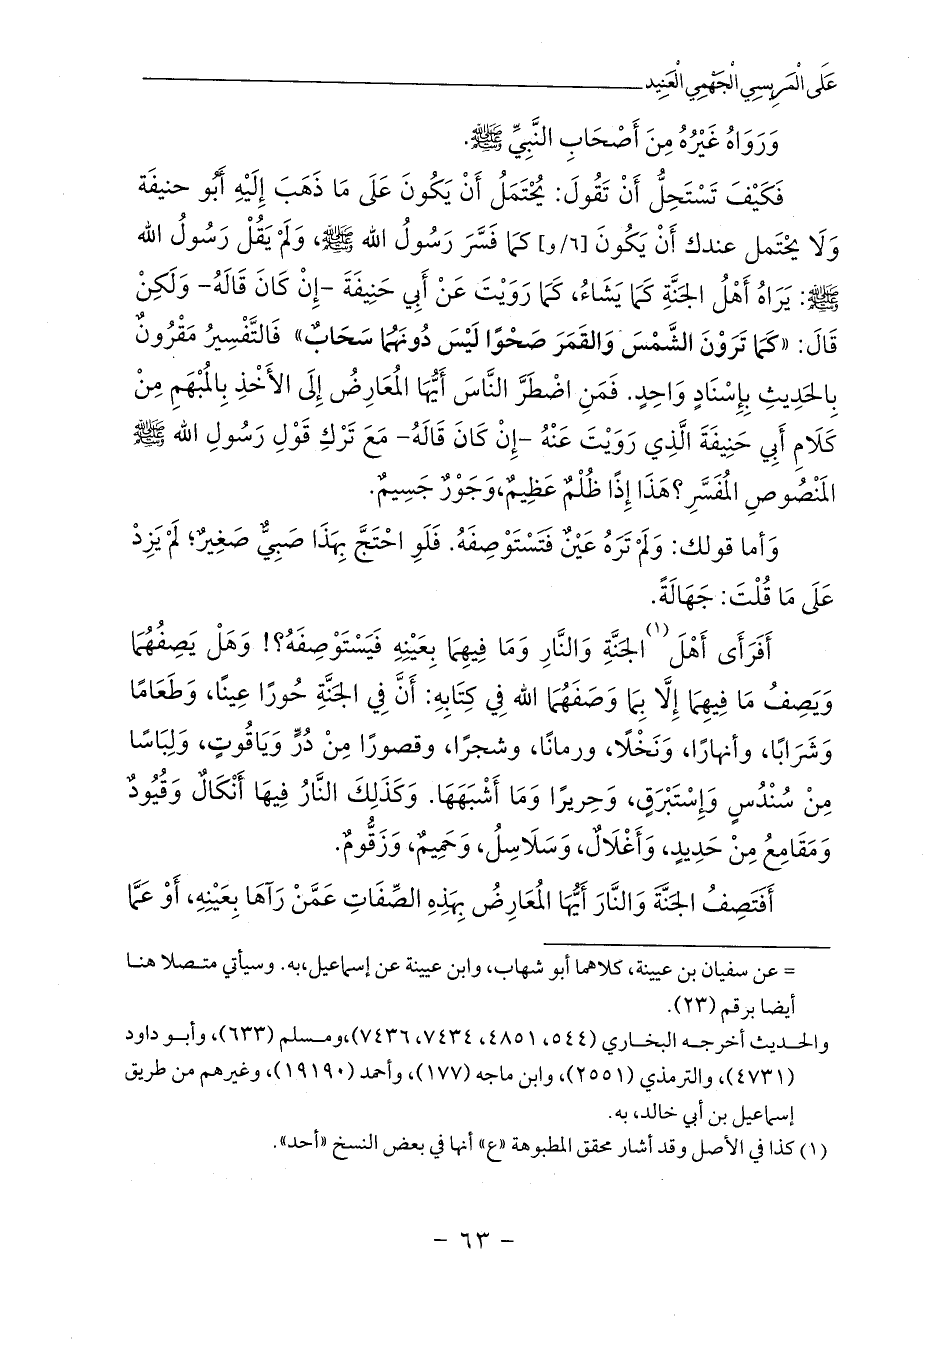 عَلَى الْمَرِيسِي الْجَهْمِي الْعَنِيد
وَرَوَاهُ غَيْرُهُ مِنَ أَصْحَابِ النَّبِيِّ ﷺ.
فَكَيْفَ تَسْتَحِلُّ أَنْ تَقُولَ: يُحْتَمَلُ أَنْ يَكُونَ عَلَى مَا ذَهَبَ إِلَيْهِ أَبُو حنيفة
وَلَا يحْتمل عندك أَنْ يَكُونَ [٦/و] كَمَا فَسَّرَ رَسُولُ الله ﷺ، وَلَمْ يَقُلْ رَسُولُ الله
ﷺ: يَرَاهُ أَهْلُ الجَنَّةِ كَمَا يَشَاءُ، كَمَا رَوَيْتَ عَنْ أَبِي حَنِيفَةَ -إِنْ كَانَ قَالَهُ- وَلَكِنْ
قَالَ: «كَمَا تَرَوْنَ الشَّمْسَ وَالقَمَرَ صَحْوًا لَيْسَ دُونَهُمَا سَحَابٌ» فَالتَّفْسِيرُ مَقْرُونٌ
بِالحَدِيثِ بِإِسْنَادٍ وَاحِدٍ. فَمَنِ اضْطَرَّ النَّاسَ أَيُّهَا المُعَارِضُ إِلَى الأَخْذِ بِالمُبْهَمِ مِنْ
كَلَامِ أَبِي حَنِيفَةَ الَّذِي رَوَيْتَ عَنْهُ -إِنْ كَانَ قَالَهُ- مَعَ تَرْكِ قَوْلِ رَسُولِ الله ﷺ
المَنْصُوصِ المُفَسَّرِ؟ هَذَا إِذًا ظُلْمٌ عَظِيمٌ، وَجَوْرٌ جَسِيمٌ.
وَأما قولك: وَلَمْ تَرَهُ عَيْنٌ فَتَسْتَوْصِفَهُ. فَلَوِ احْتَجَّ بِهَذَا صَبِيٌّ صَغِيرٌ؛ لَمْ يَزِدْ
عَلَى مَا قُلْتَ: جَهَالَةً.
أَفَرَأَى أَهْلَ(١) الجَنَّةِ وَالنَّارِ وَمَا فِيهِمَا بِعَيْنِهِ فَيَسْتَوْصِفَهُ؟! وَهَلْ يَصِفُهُمَا
وَيَصِفُ مَا فِيهِمَا إِلَّا بِمَا وَصَفَهُمَا الله فِي كِتَابِهِ: أَنَّ فِي الجَنَّةِ حُورًا عِينًا، وَطَعَامًا
وَشَرَابًا، وأنهارًا، وَنَخْلًا، ورمانًا، وشجرًا، وقصورًا مِنْ دُرٍّ وَيَاقُوتٍ، وَلِبَاسًا
مِنْ سُنْدُسٍ وَإِسْتَبْرَقٍ، وَحَرِيرًا وَمَا أَشْبَهَهَا. وَكَذَلِكَ النَّارُ فِيهَا أَنْكَالٌ وَقُيُودٌ
وَمَقَامِعُ مِنْ حَدِيدٍ، وَأَغْلَالٌ، وَسَلَاسِلُ، وَحَمِيمٌ، وَزَقُّومٌ.
أَفَتَصِفُ الجَنَّةَ وَالنَّارَ أَيُّهَا المُعَارِضُ بِهَذِهِ الصِّفَاتِ عَمَّنْ رَآهَا بِعَيْنِهِ، أَوْ عَمَّا
= عن سفيان بن عيينة، كلاهما أبو شهاب، وابن عيينة عن إسماعيل، به. وسيأتي متصلا هنا
أيضا برقم (٢٣).
والحديث أخرجه البخاري (٥٤٤، ٤٨٥١، ٧٤٣٤، ٧٤٣٦)، ومسلم (٦٣٣)، وأبو داود
(٤٧٣١)، والترمذي (٢٥٥١)، وابن ماجه (١٧٧)، وأحمد (١٩١٩٠)، وغيرهم من طريق
إسماعيل بن أبي خالد، به.
(١) كذا في الأصل وقد أشار محقق المطبوعة «ع» أنها في بعض النسخ «أحد».
- ٦٣ -